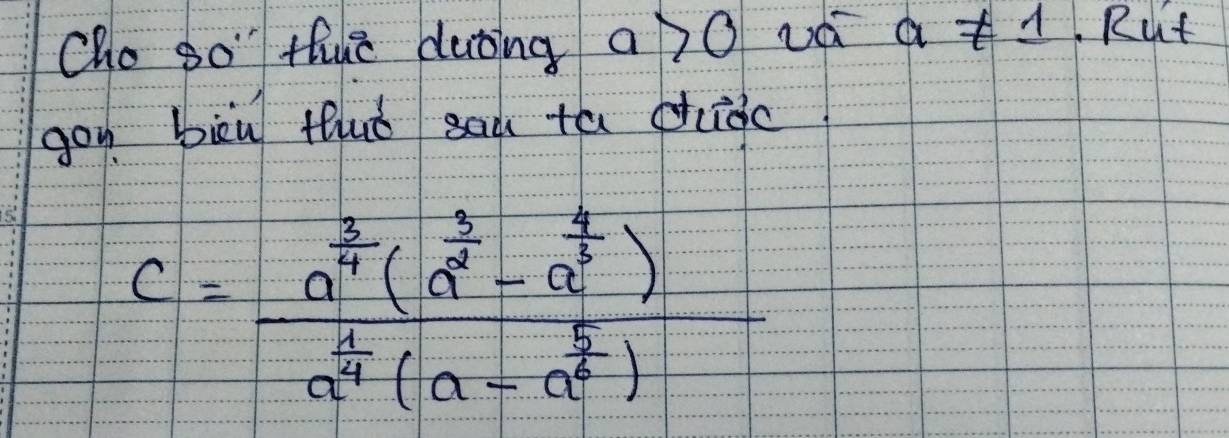 Cho số thực dương a > 0 và a ≠ 1. Rút
gọn biểu thức sau ta được
C = \frac{a^{\frac{3}{4}}(a^{\frac{3}{2}} - a^{\frac{4}{3}})}{a^{\frac{1}{4}}(a - a^{\frac{5}{6}})}